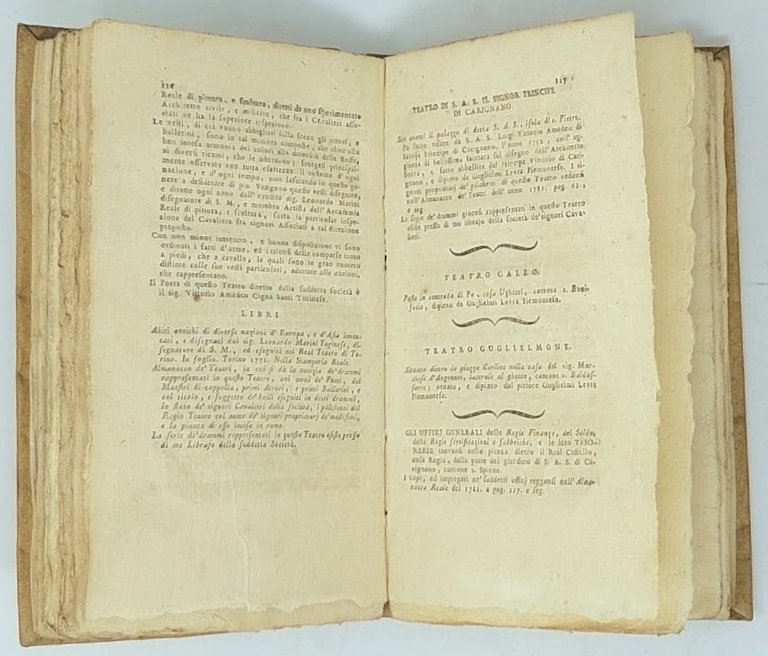 116
Reale di pittura, e scultura, diretti da uno sperimentato
Architetto civile, e militare, che fra i Cavalieri asso-
ciati ne ha la superiore ispezione.
Le vesti, di cui vanno abbigliati sulla scena gli attori, e
ballerini, sono in tal maniera composte, che oltre alla
ben intesa armonia dei colori alla diversità delle stoffe,
ai diversi ricami, che le adornano, scorgesi principal-
mente osservato con tutta esattezza il costume d'ogni
nazione, e d'ogni tempo, non lasciando in questo ge-
nere a desiderare di più. Vengono queste vesti disegnate,
e dirette ogni anno dall'erudito sig. Leonardo Marini
disegnatore di S. M., e membro Artista dell'Accademia
Reale di pittura, e scultura, sotto la particolar ispe-
zione del Cavaliere fra signori Associati a tal direzione
preposto.
Con non minor intreccio, e buona disposizione vi sono
ordinati i fatti d'arme, ed i trionfi delle comparse tanto
a piedi, che a cavallo, le quali sono in gran numero
distinte colle sue vesti particolari, adattate alle nazioni,
che rappresentano.
Il Poeta di questo Teatro diretto dalla suddetta società è
il sig. Vittorio Amadeo Cigna Santi Torinese.
LIBRI.
Abiti antichi di diverse nazioni d'Europa, e d'Asia inven-
tati, e disegnati dal sig. Leonardo Marini Torinese, di-
segnatore di S. M., ed eseguiti nel Real Teatro di To-
rino. In foglio. Torino 1771. Nella Stamperia Reale.
Almanacco de' Teatri, in cui si dà la notizia de' drammi
rappresentati in questo Teatro, coi nomi de' Poeti, dei
Maestri di cappella, primi Attori, e primi Ballerini, e
col titolo, e soggetto de' balli eseguiti in detti drammi,
lo stato de' signori Cavalieri della Società, i palchetti del
Regio Teatro col nome de' signori proprietarj de' medesimi,
e la pianta di esso incisa in rame.
La serie de' drammi rappresentati in questo Teatro esiste presso
di me Librajo della suddetta Società.
117
TEATRO DI S. A. S. IL SIGNOR PRINCIPE
DI CARIGNANO.
Sito avanti il palazzo di detta S. A. S., isola di s. Pietro.
Fu fatto rifare da S. A. S. Luigi Vittorio Amedeo di
Savoja Principe di Carignano, l'anno 1752, coll'ag-
giunta di bellissima facciata sul disegno dell'Architetto
e fatto abbellire dal Principe Vittorio di Cari-
gnano, e dipinto da Guglielmi Levra Piemontese. I si-
gnori proprietarj de' palchetti di questo Teatro vedonsi
nell'Almanacco de' Teatri dell'anno 1781. pag. 63.
e seg.
La serie de' drammi giocosi rappresentati in questo Teatro
esiste presso di me librajo della società de' signori Cava-
lieri.
TEATRO GALLO.
Posto in contrada di Po, casa Ughetti, cantone s. Boni-
facio, dipinto da Guglielmi Levra Piemontese.
TEATRO GUGLIELMONE.
Situato dietro la piazza Carlina nella casa del sig. Mar-
chese d'Angennes, laterale al ghetto, cantone s. Baldas-
sarre; ornato, e dipinto dal pittore Guglielmi Levra
Piemontese.
GLI UFFIZJ GENERALI delle Regie Finanze, del Soldo,
delle Regie fortificazioni e fabbriche, e le loro TESO-
RERIE trovansi nella piazza dietro il Real Castello,
casa Regia, dalla parte del giardino di S. A. S. di Ca-
rignano, cantone s. Spirito.
I capi, ed impiegati ne' suddetti uffizj veggansi nell'Alma-
nacco Reale del 1781. a pag. 117. e seg.